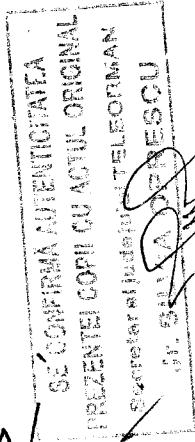 SE CONFIRMĂ AUTENTICITATEA
PREZENTEI COPII CU ACTUL ORIGINAL
Secretar al județului TELEORMAN